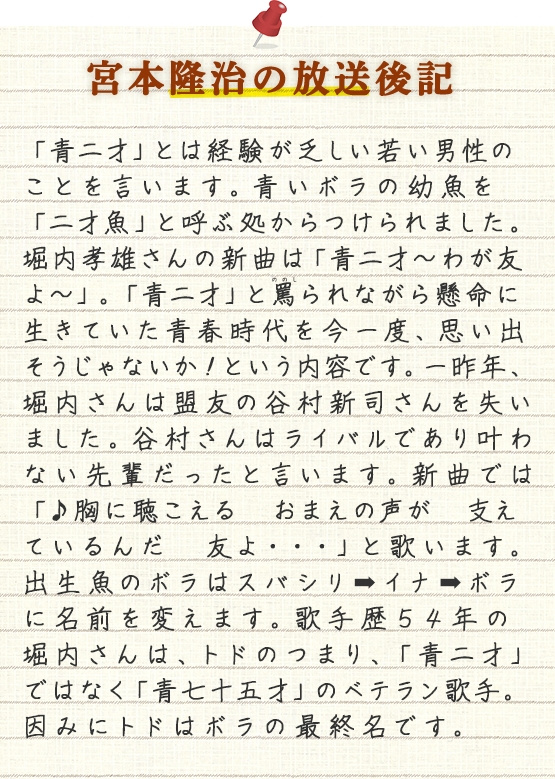 宮本隆治の放送後記
「青二才」とは経験が乏しい若い男性の
ことを言います。青いボラの幼魚を
「二才魚」と呼ぶ処からつけられました。
堀内孝雄さんの新曲は「青二才～わが友
よ～」。「青二才」と罵られながら懸命に
ののし
生きていた青春時代を今一度、思い出
そうじゃないか！という内容です。一昨年、
堀内さんは盟友の谷村新司さんを失い
ました。谷村さんはライバルであり叶わ
ない先輩だったと言います。新曲では
「♪胸に聴こえる　おまえの声が　支え
ているんだ　友よ・・・」と歌います。
出生魚のボラはスバシリ➡イナ➡ボラ
に名前を変えます。歌手歴５４年の
堀内さんは、トドのつまり、「青二才」
ではなく「青七十五才」のベテラン歌手。
因みにトドはボラの最終名です。